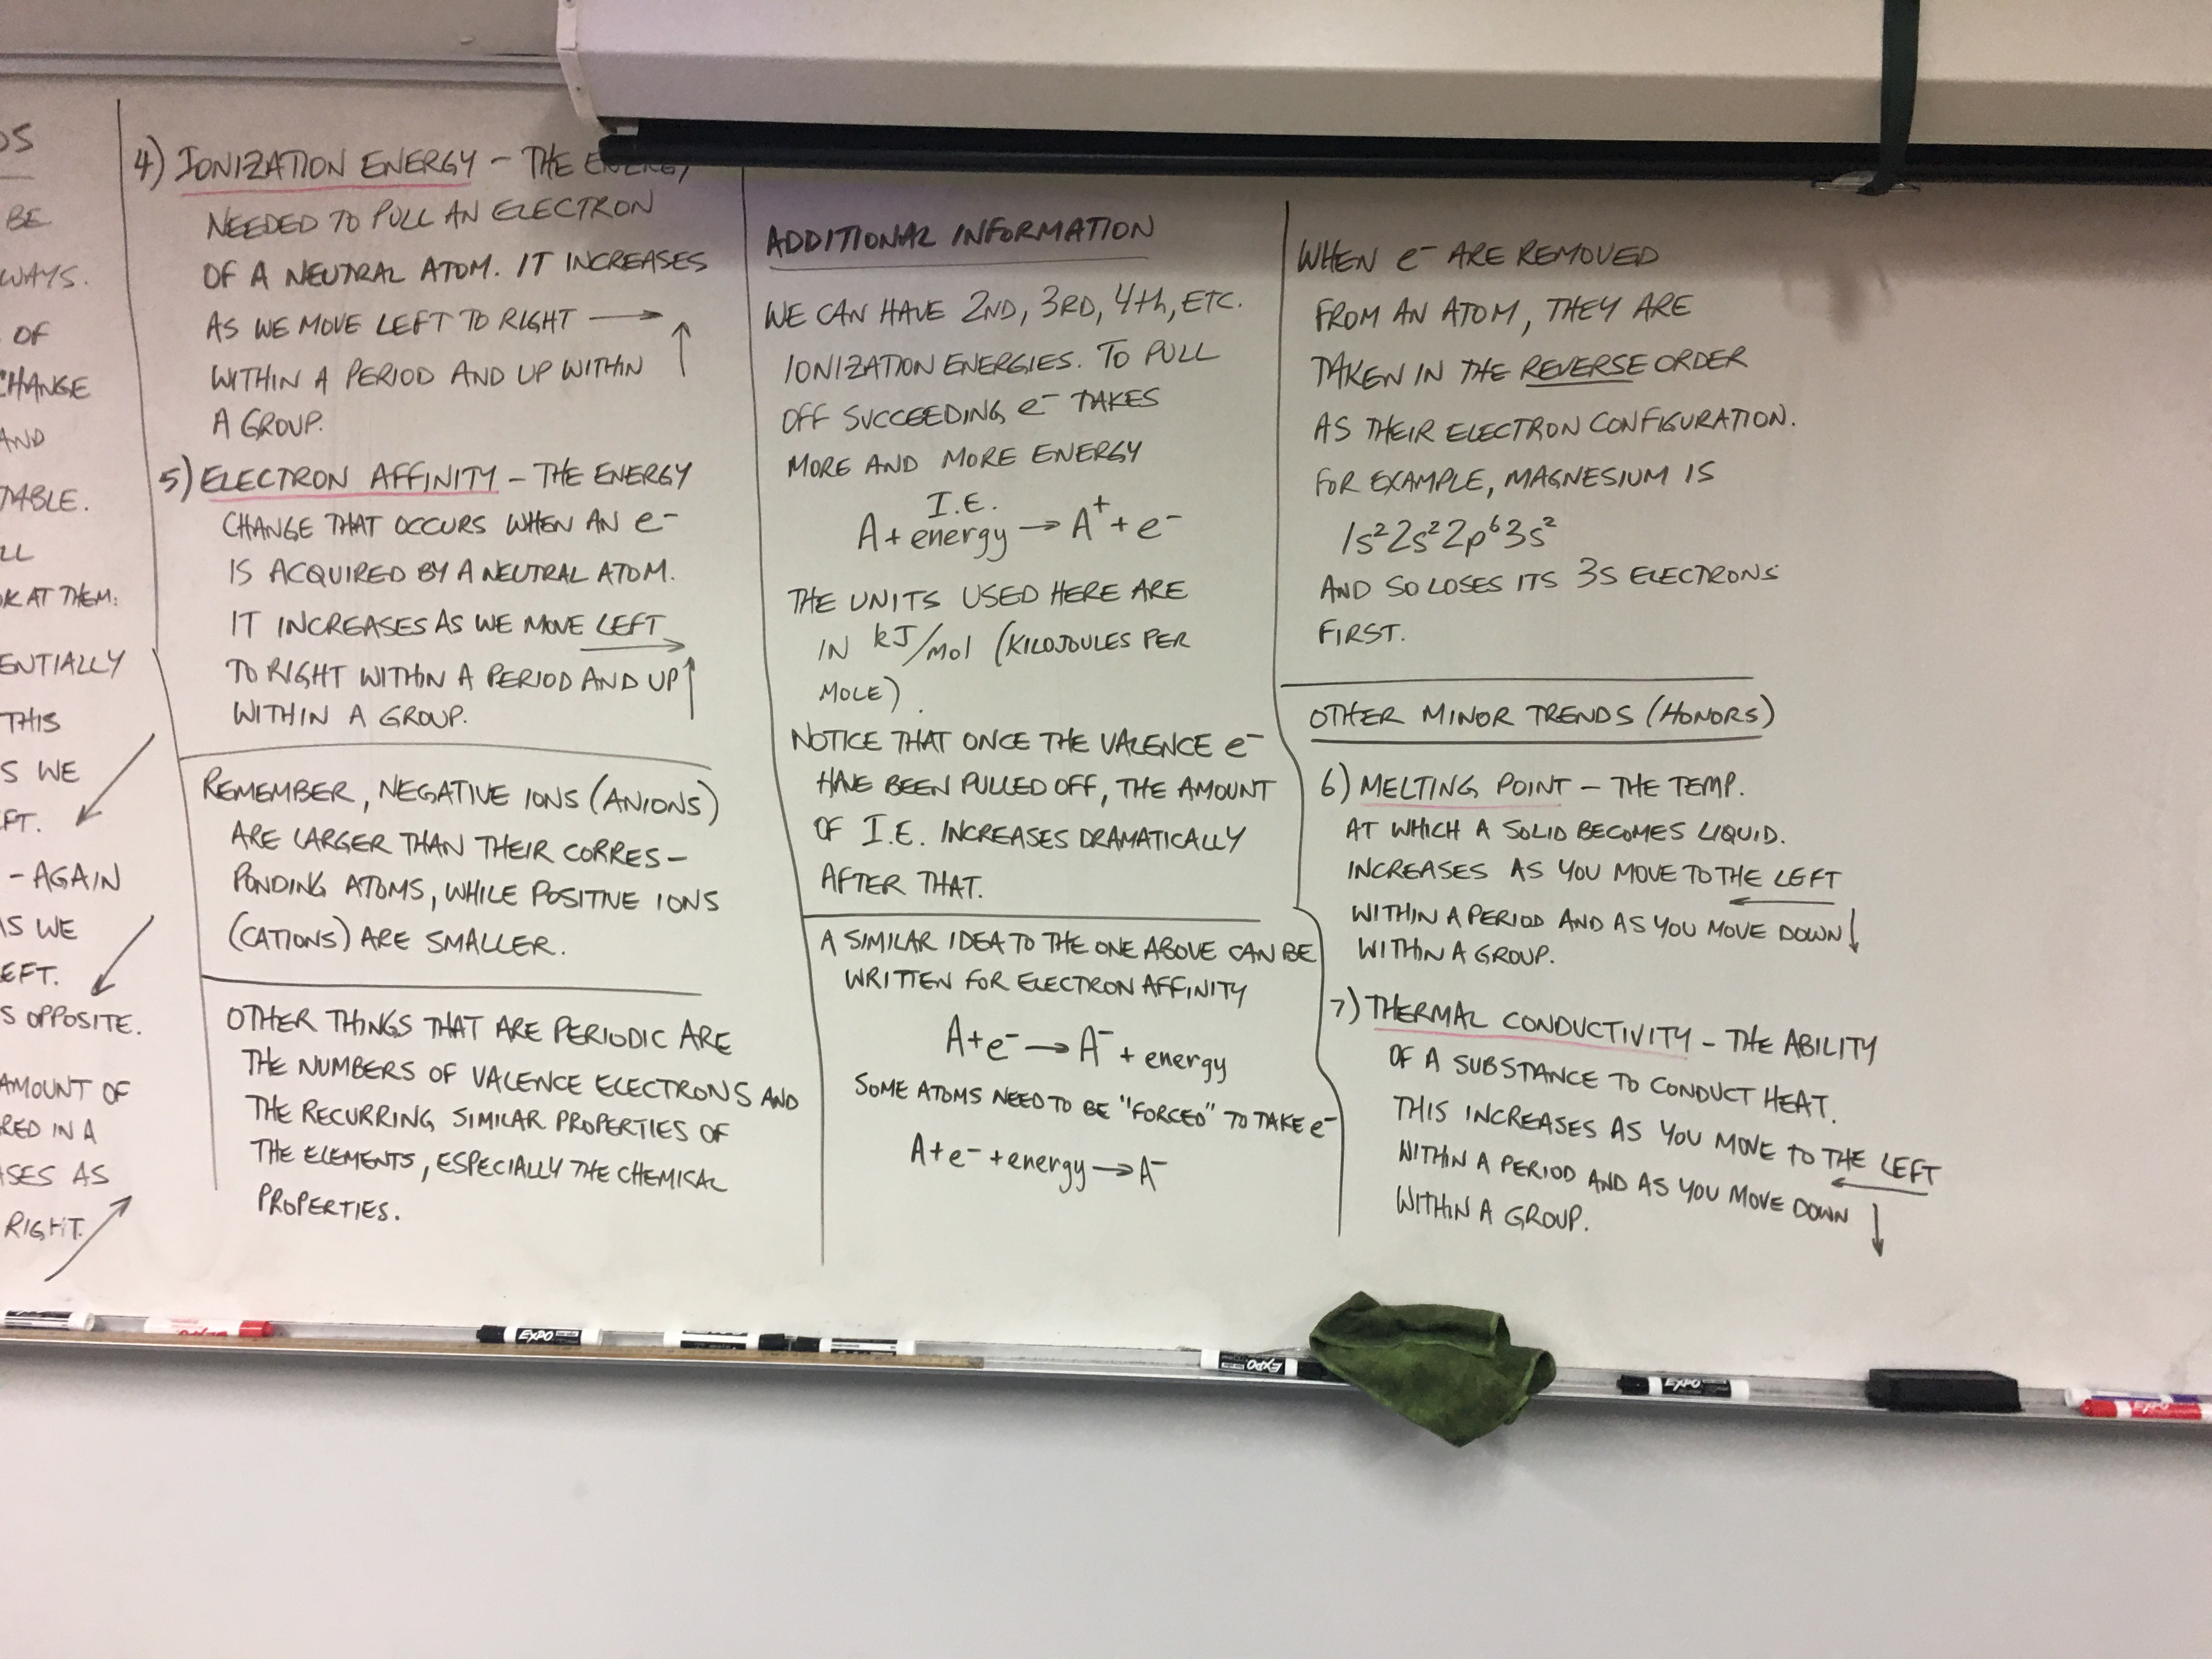 DS
BE
WAYS.
OF
CHANGE
AND
TABLE.
LL
OK AT THEM:
ENTIALLY
THIS
S WE
FT.
- AGAIN
AS WE
EFT.
S OPPOSITE.
AMOUNT OF
RED IN A
ASES AS
RIGHT.
4) IONIZATION ENERGY - THE ENERGY
NEEDED TO PULL AN ELECTRON
OF A NEUTRAL ATOM. IT INCREASES
AS WE MOVE LEFT TO RIGHT → ↑
WITHIN A PERIOD AND UP WITHIN
A GROUP.
5) ELECTRON AFFINITY - THE ENERGY
CHANGE THAT OCCURS WHEN AN e⁻
IS ACQUIRED BY A NEUTRAL ATOM.
IT INCREASES AS WE MOVE LEFT →
TO RIGHT WITHIN A PERIOD AND UP ↑
WITHIN A GROUP.
REMEMBER, NEGATIVE IONS (ANIONS)
ARE LARGER THAN THEIR CORRES-
PONDING ATOMS, WHILE POSITIVE IONS
(CATIONS) ARE SMALLER.
OTHER THINGS THAT ARE PERIODIC ARE
THE NUMBERS OF VALENCE ELECTRONS AND
THE RECURRING SIMILAR PROPERTIES OF
THE ELEMENTS, ESPECIALLY THE CHEMICAL
PROPERTIES.
ADDITIONAL INFORMATION
WE CAN HAVE 2ND, 3RD, 4th, ETC.
IONIZATION ENERGIES. TO PULL
OFF SUCCEEDING e⁻ TAKES
MORE AND MORE ENERGY
I.E.
A + energy → A⁺ + e⁻
THE UNITS USED HERE ARE
IN kJ/mol (KILOJOULES PER
MOLE).
NOTICE THAT ONCE THE VALENCE e⁻
HAVE BEEN PULLED OFF, THE AMOUNT
OF I.E. INCREASES DRAMATICALLY
AFTER THAT.
A SIMILAR IDEA TO THE ONE ABOVE CAN BE
WRITTEN FOR ELECTRON AFFINITY
A + e⁻ → A⁻ + energy
SOME ATOMS NEED TO BE "FORCED" TO TAKE e⁻
A + e⁻ + energy → A⁻
WHEN e⁻ ARE REMOVED
FROM AN ATOM, THEY ARE
TAKEN IN THE REVERSE ORDER
AS THEIR ELECTRON CONFIGURATION.
FOR EXAMPLE, MAGNESIUM IS
1s²2s²2p⁶3s²
AND SO LOSES ITS 3S ELECTRONS
FIRST.
OTHER MINOR TRENDS (HONORS)
6) MELTING POINT - THE TEMP.
AT WHICH A SOLID BECOMES LIQUID.
INCREASES AS YOU MOVE TO THE LEFT ←
WITHIN A PERIOD AND AS YOU MOVE DOWN ↓
WITHIN A GROUP.
7) THERMAL CONDUCTIVITY - THE ABILITY
OF A SUBSTANCE TO CONDUCT HEAT.
THIS INCREASES AS YOU MOVE TO THE LEFT ←
WITHIN A PERIOD AND AS YOU MOVE DOWN ↓
WITHIN A GROUP.
EXPO
EXPO
EXPO
EXPO